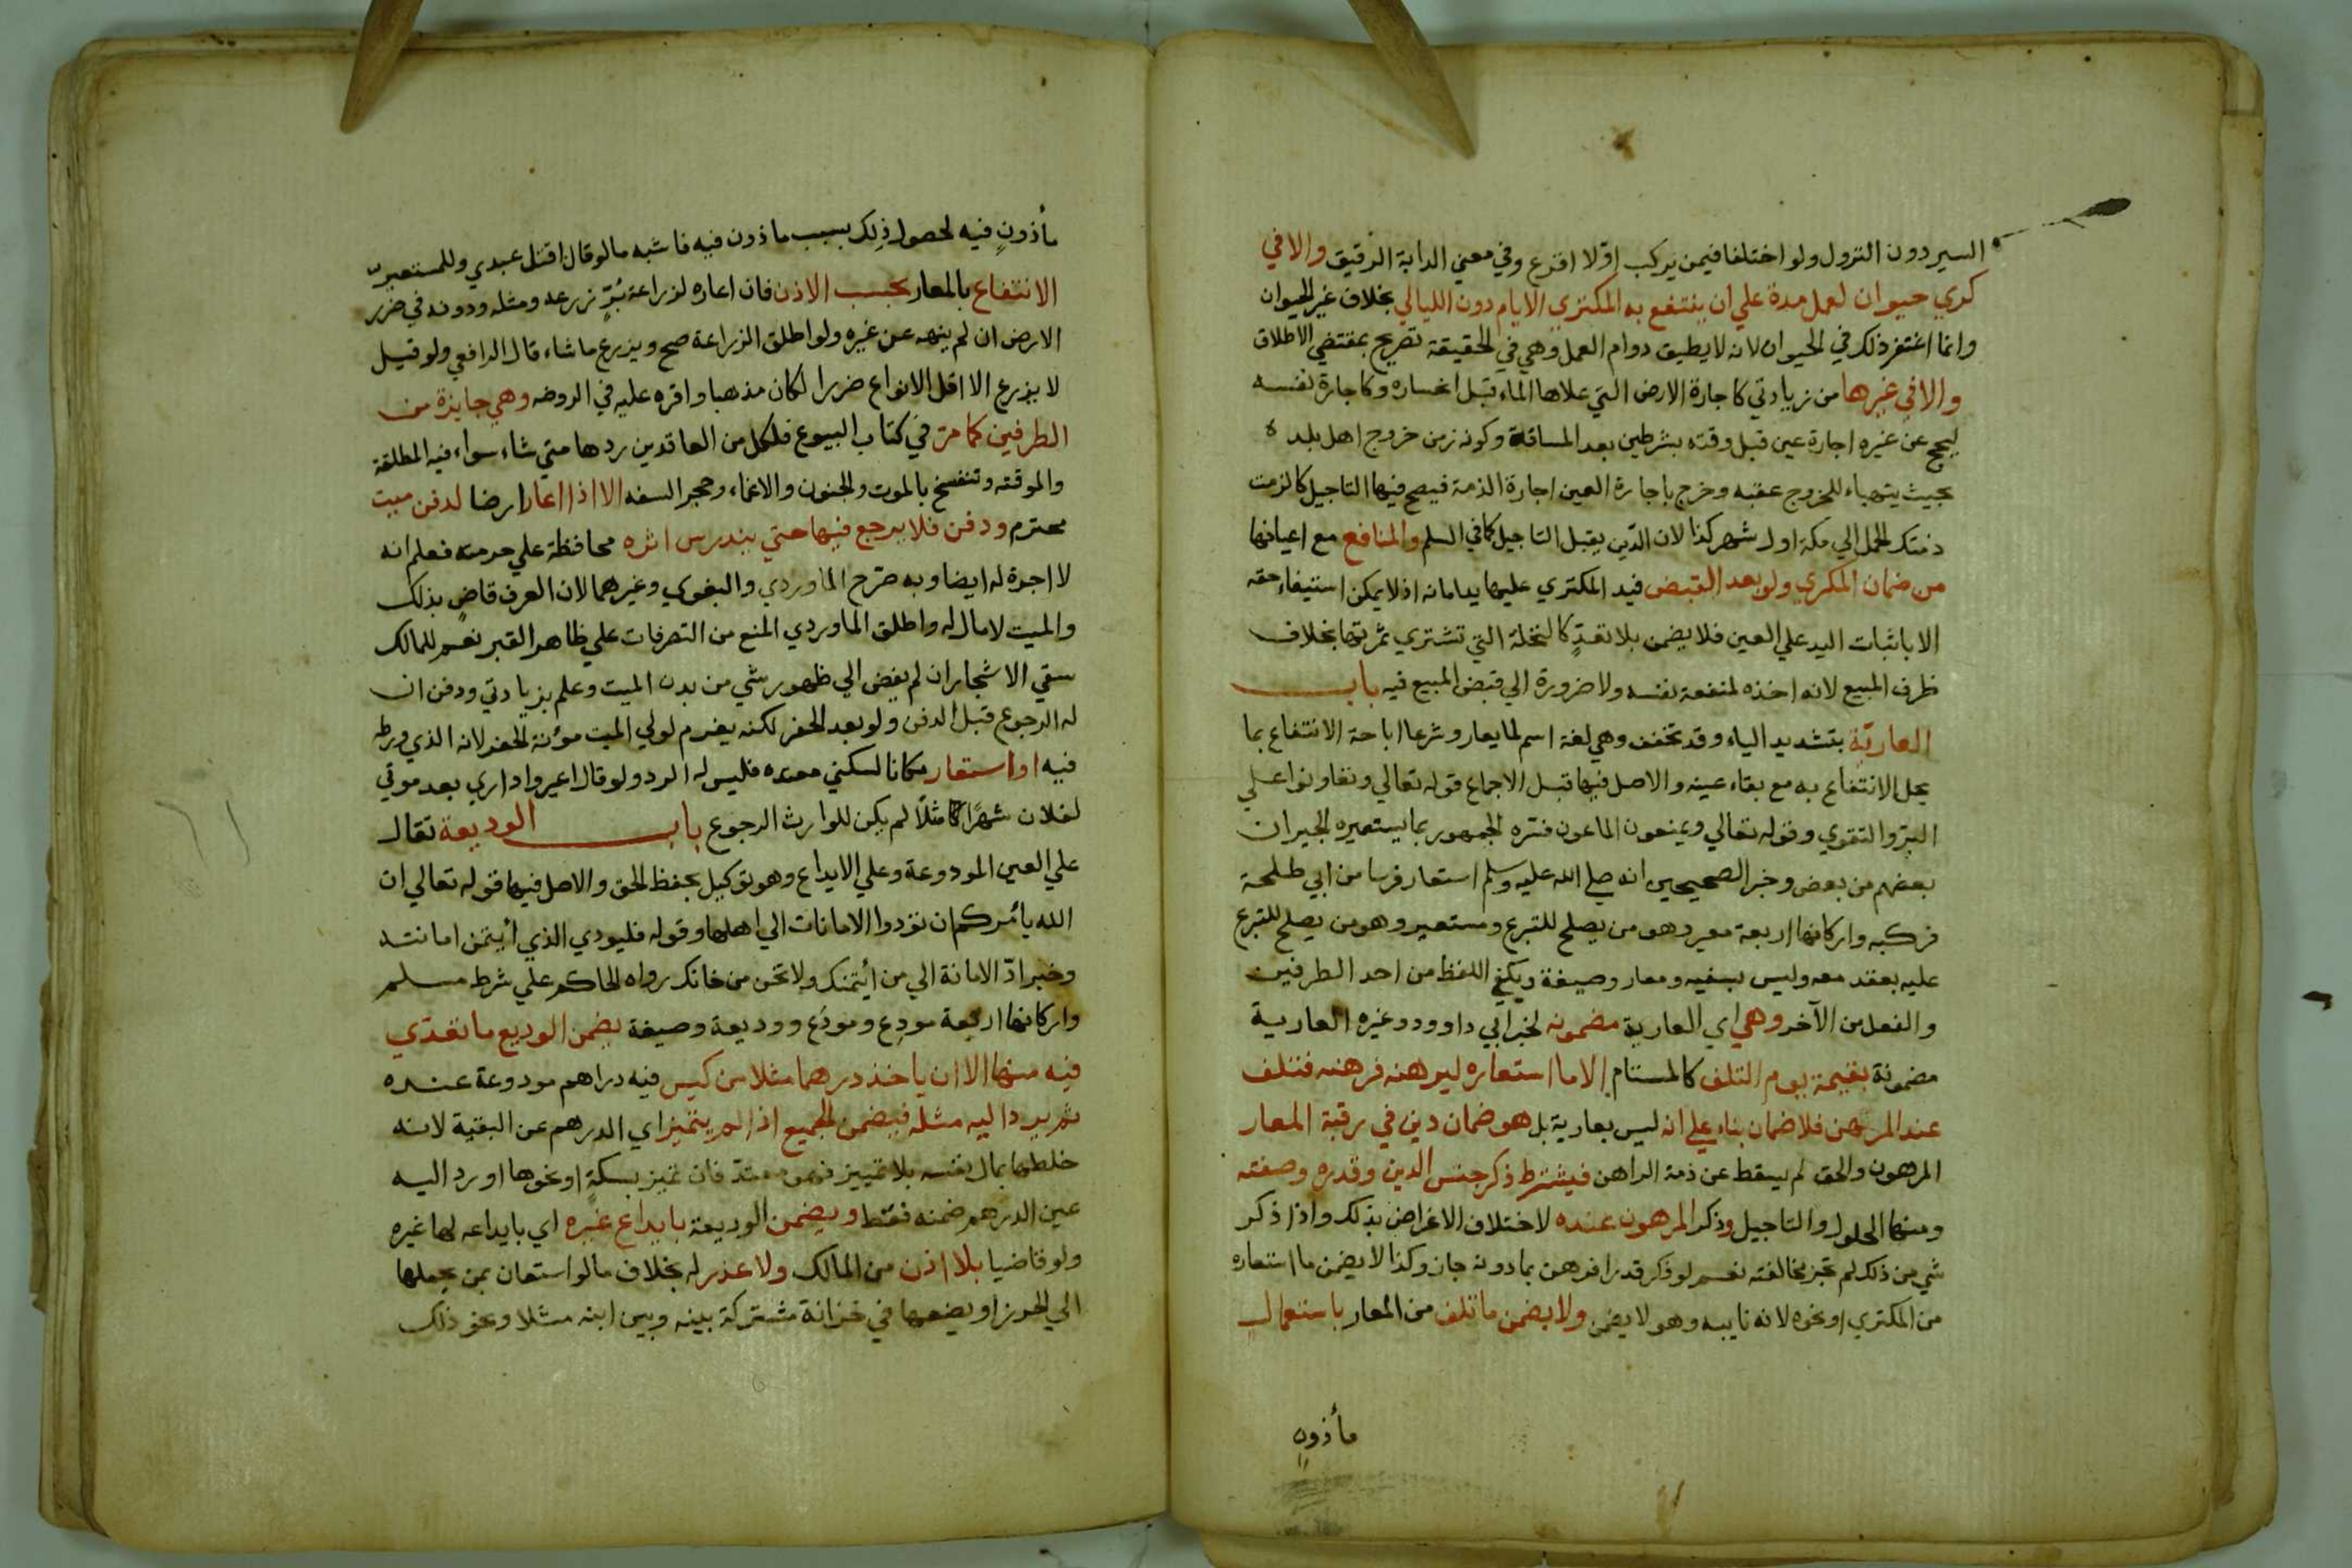 السير دون النزول ولو اختلفا فيمن يركب اولا اقرع وفي معني الدابة الرقيق والا في
كري حيوان لعمل مدة علي ان ينتفع به المكتري الايام دون الليالي بخلاف غير الحيوان
وانما اغتفر ذلك في الحيوان لانه لا يطيق دوام العمل وهي في الحقيقة تصريح بمقتضي الاطلاق
والا في غيرها من زيادتي كاجارة الارض التي علاها الماء قبل انحساره وكاجارة نفسه
ليحج عن غيره اجارة عين قبل وقته بشرطين بعد المسافة وكونه زمن خروج اهل بلده
بحيث يتهياء للخروج عقبه وخرج باجارة العين اجارة الذمة فيصح فيها التاجيل كالزمت
ذمتك الحمل الي مكة اول شهر كذا لان الدين يقبل التاجيل كما في السلم والمنافع مع اعيانها
من ضمان المكري ولو بعد القبض فيد المكتري عليها يد امانه اذ لا يمكن استيفاء حقه
الا باثبات اليد علي العين فلا يضمن بلا تعدٍّ كالنخلة التي تشتري ثمرتها بخلاف
ظرف المبيع لانه اخذه لمنفعة نفسه ولا ضرورة الي قبض المبيع فيه باب
العارية بتشديد الياء وقد تخفف وهي لغة اسم لما يعار وشرعا اباحة الانتفاع بما
يحل الانتفاع به مع بقاء عينه والاصل فيها قبل الاجماع قوله تعالي وتعاونوا علي
البر والتقوي وقوله تعالي ويمنعون الماعون فسره الجمهور بما يستعيره الجيران
بعضهم من بعض وخبر الصحيحين انه صلي الله عليه وسلم استعار فرسا من ابي طلحة
فركبه واركانها اربعة معير وهو من يصلح للتبرع ومستعير وهو من يصلح للتبرع
عليه بعقد معه وليس بسفيه ومعار وصيغة ويكفي اللفظ من احد الطرفين
والفعل من الآخر وهي اي العارية مضمونه لخبر ابي داوود وغيره العارية
مضمونة بقيمة يوم التلف كالمستام الا ما استعاره ليرهنه فرهنه فتلف
عند المرتهن فلا ضمان بناء علي انه ليس بعارية بل هو ضمان دين في رقبة المعار
المرهون والحق لم يسقط عن ذمة الراهن فيشترط ذكر جنس الدين وقدره وصفته
ومنها الحلول والتاجيل وذكر المرهون عنده لاختلاف الاغراض بذلك واذا ذكر
شي من ذلك لم تجز مخالفته نعم لو ذكر قدرا فرهن بما دونه جاز وكذا لا يضمن ما استعاره
من المكتري او نحوه لانه نايبه وهو لا يضمن ولا يضمن ما تلف من المعار باستعمال
مأذون
مأذونٍ فيه لحصول ذلك بسبب ماذون فيه فاشبه ما لو قال اقتل عبدي وللمستعير
الانتفاع بالمعار بحسب الاذن فان اعاره لزراعة بُرٍّ زرعه ومثله ودونه في ضرر
الارض ان لم ينهه عن غيره ولو اطلق الزراعة صح ويزرع ما شاء قال الرافعي ولو قيل
لا يزرع الا اقل الانواع ضررا لكان مذهبا واقره عليه في الروضه وهي جايزة من
الطرفين كما مر في كتاب البيوع فلكل من العاقدين ردها متي شاء سواء فيه المطلقة
والموقته وتنفسخ بالموت والجنون والاغماء وحجر السفه الا اذا اعار ارضا لدفن ميت
محترم ودفن فلا يرجع فيها حتي يندرس اثره محافظة علي حرمته فعلم انه
لا اجرة له ايضا وبه صرح الماوردي والبغوي وغيرهما لان العرف قاضٍ بذلك
والميت لا مال له واطلق الماوردي المنع من التصرفات علي ظاهر القبر نعم للمالك
سقي الاشجار ان لم يفض الي ظهور شي من بدن الميت وعلم بزيادتي ودفن ان
له الرجوع قبل الدفن ولو بعد الحفر لكنه يغرم لولي الميت مؤنة الحفر لانه الذي ورطه
فيه او استعار مكانا لسكني معتده فليس له الرد ولو قال اعيروا داري بعد موتي
لفلان شهرًا مثلًا لم يكن للوارث الرجوع باب الوديعة تقال
علي العين المودوعة وعلي الايداع وهو توكيل بحفظ الحق والاصل فيها قوله تعالي ان
الله يأمركم ان تؤدوا الامانات الي اهلها وقوله فليودي الذي أيتمن امانته
وخبر ادّ الامانة الي من ائتمنك ولا تخن من خانك رواه الحاكم علي شرط مسلم
واركانها اربعة مودِع ومودَع ووديعة وصيغة يضمن الوديع ما تعدي
فيه منها الا ان ياخذ درهما مثلا من كيس فيه دراهم مودوعة عنده
ثم يرد اليه مثله فيضمن الجميع اذا لم يتميز اي الدرهم عن البقية لانه
خلطها بمال نفسه بلا تمييز فهو معتد فان تميز بسكةٍ او نحوها او رد اليه
عين الدرهم ضمنه فقط ويضمن الوديعة بايداع غيره اي بايداعه لها غيره
ولو قاضيا بلا اذن من المالك ولا عذر له بخلاف ما لو استعان بمن يحملها
الي الحرز او يضعها في خزانة مشتركة بينه وبين ابنه مثلا ونحو ذلك